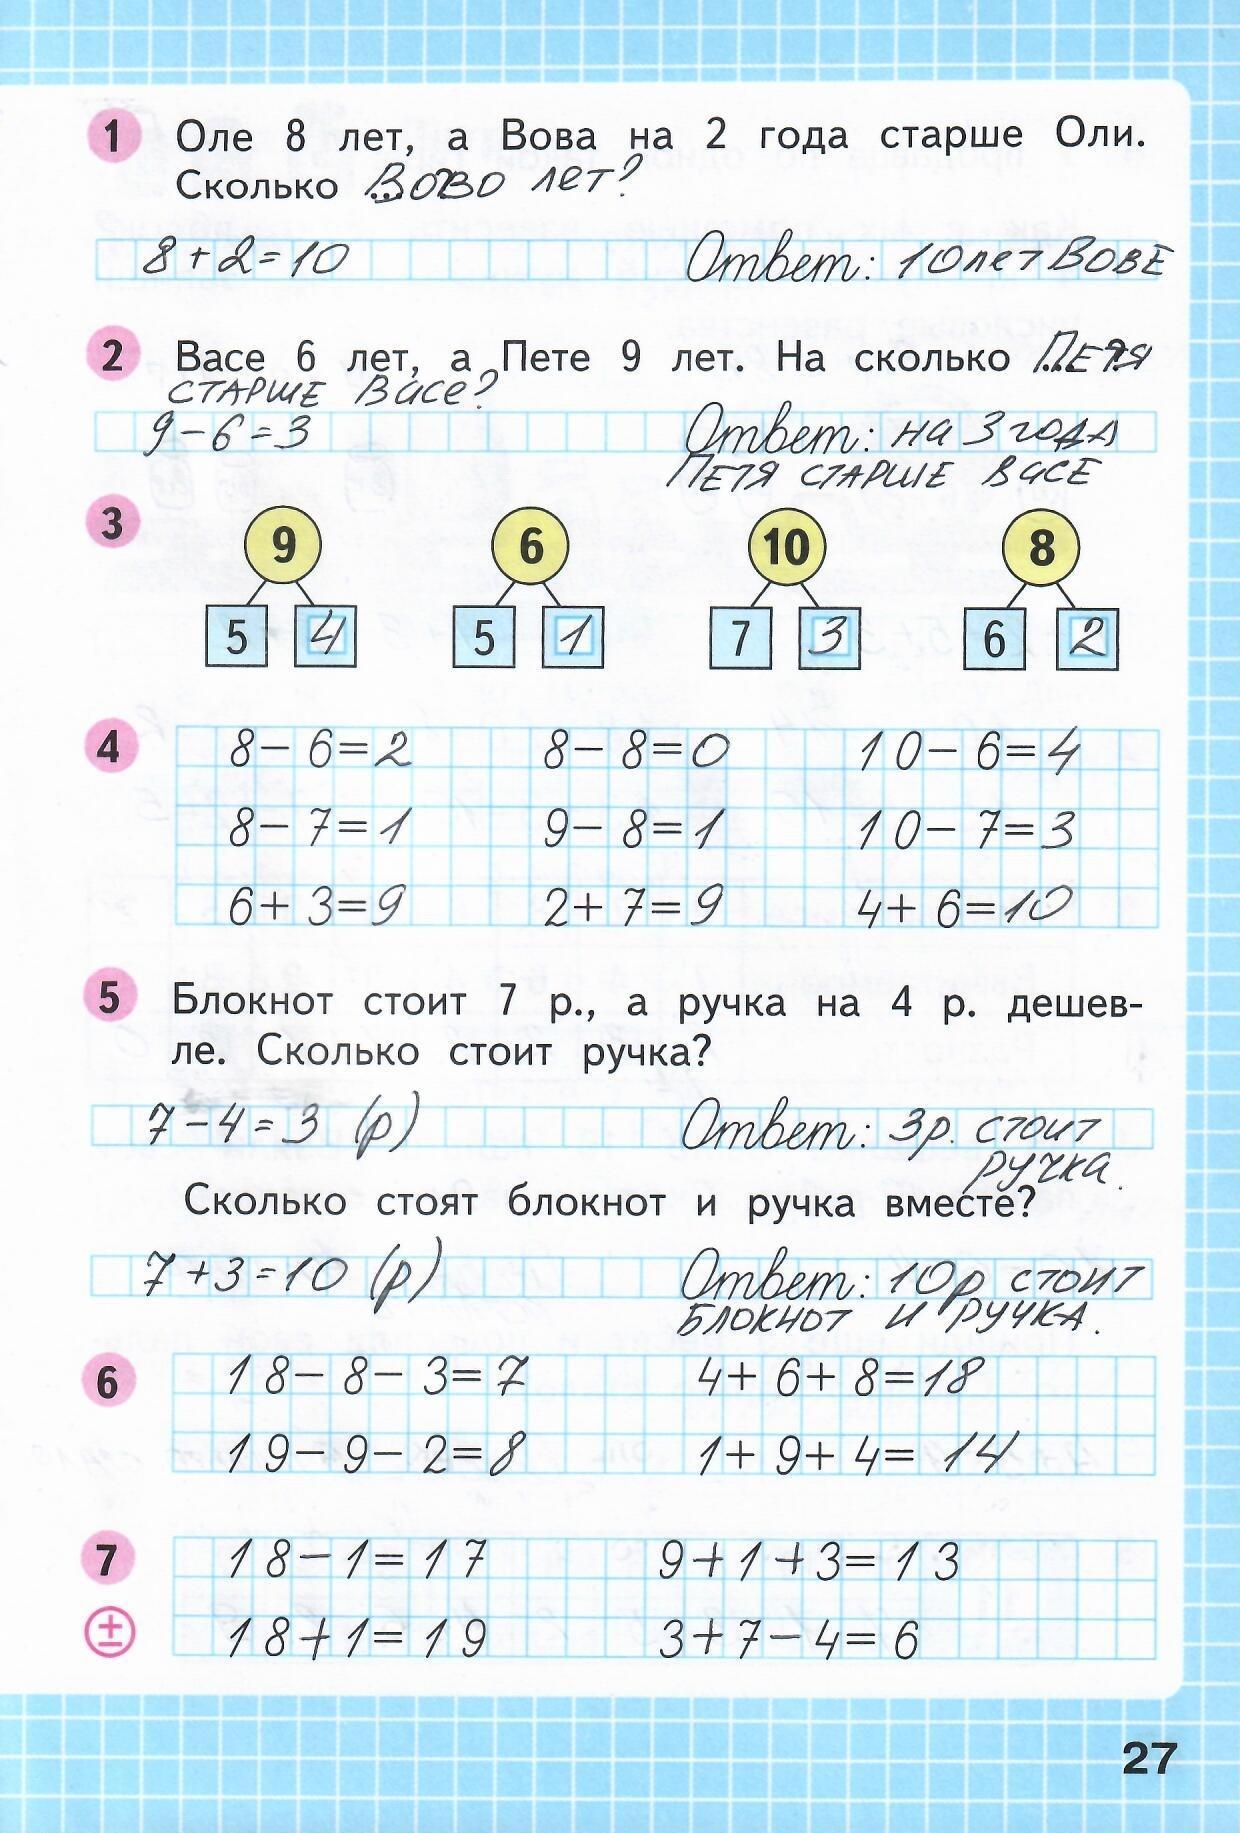 1 Оле 8 лет, а Вова на 2 года старше Оли.
Сколько Вово лет?
8+2=10 Ответ: 10 лет Вове
2 Васе 6 лет, а Пете 9 лет. На сколько Петя
старше Васе?
9-6=3 Ответ: на 3 года
Петя старше Васе
3
9 6 10 8
5 4 5 1 7 3 6 2
4 8-6=2 8-8=0 10-6=4
8-7=1 9-8=1 10-7=3
6+3=9 2+7=9 4+6=10
5 Блокнот стоит 7 р., а ручка на 4 р. дешев-
ле. Сколько стоит ручка?
7-4=3 (р) Ответ: 3р. стоит
ручка.
Сколько стоят блокнот и ручка вместе?
7+3=10 (р) Ответ: 10р стоит
блокнот и ручка.
6 18-8-3=7 4+6+8=18
19-9-2=8 1+9+4=14
7 18-1=17 9+1+3=13
± 18+1=19 3+7-4=6
27